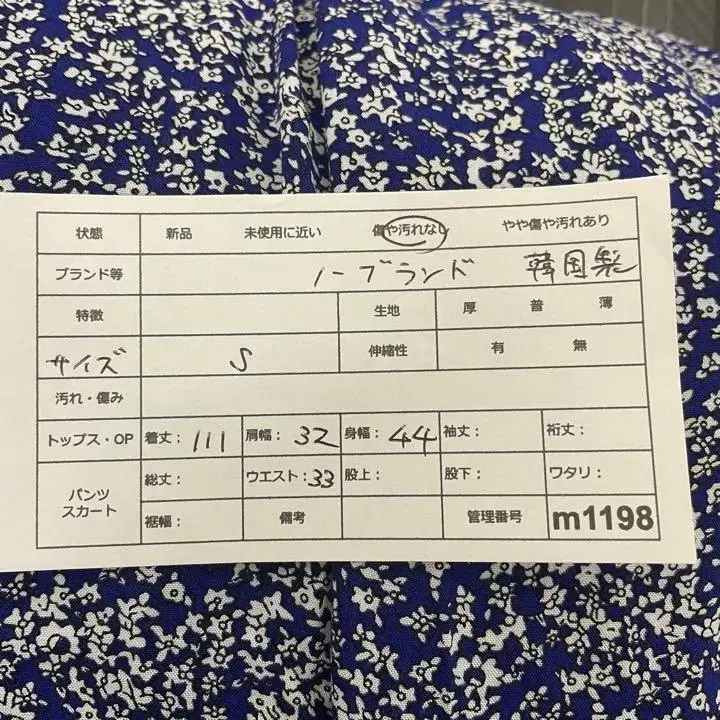 状態 新品 未使用に近い 傷や汚れなし やや傷や汚れあり
ブランド等 ノーブランド 韓国製
特徴 生地 厚 普 薄
サイズ S 伸縮性 有 無
汚れ・傷み
トップス・OP 着丈: 111 肩幅: 32 身幅: 44 袖丈: 裄丈:
パンツ スカート 総丈: ウエスト: 33 股上: 股下: ワタリ:
裾幅: 備考 管理番号 m1198